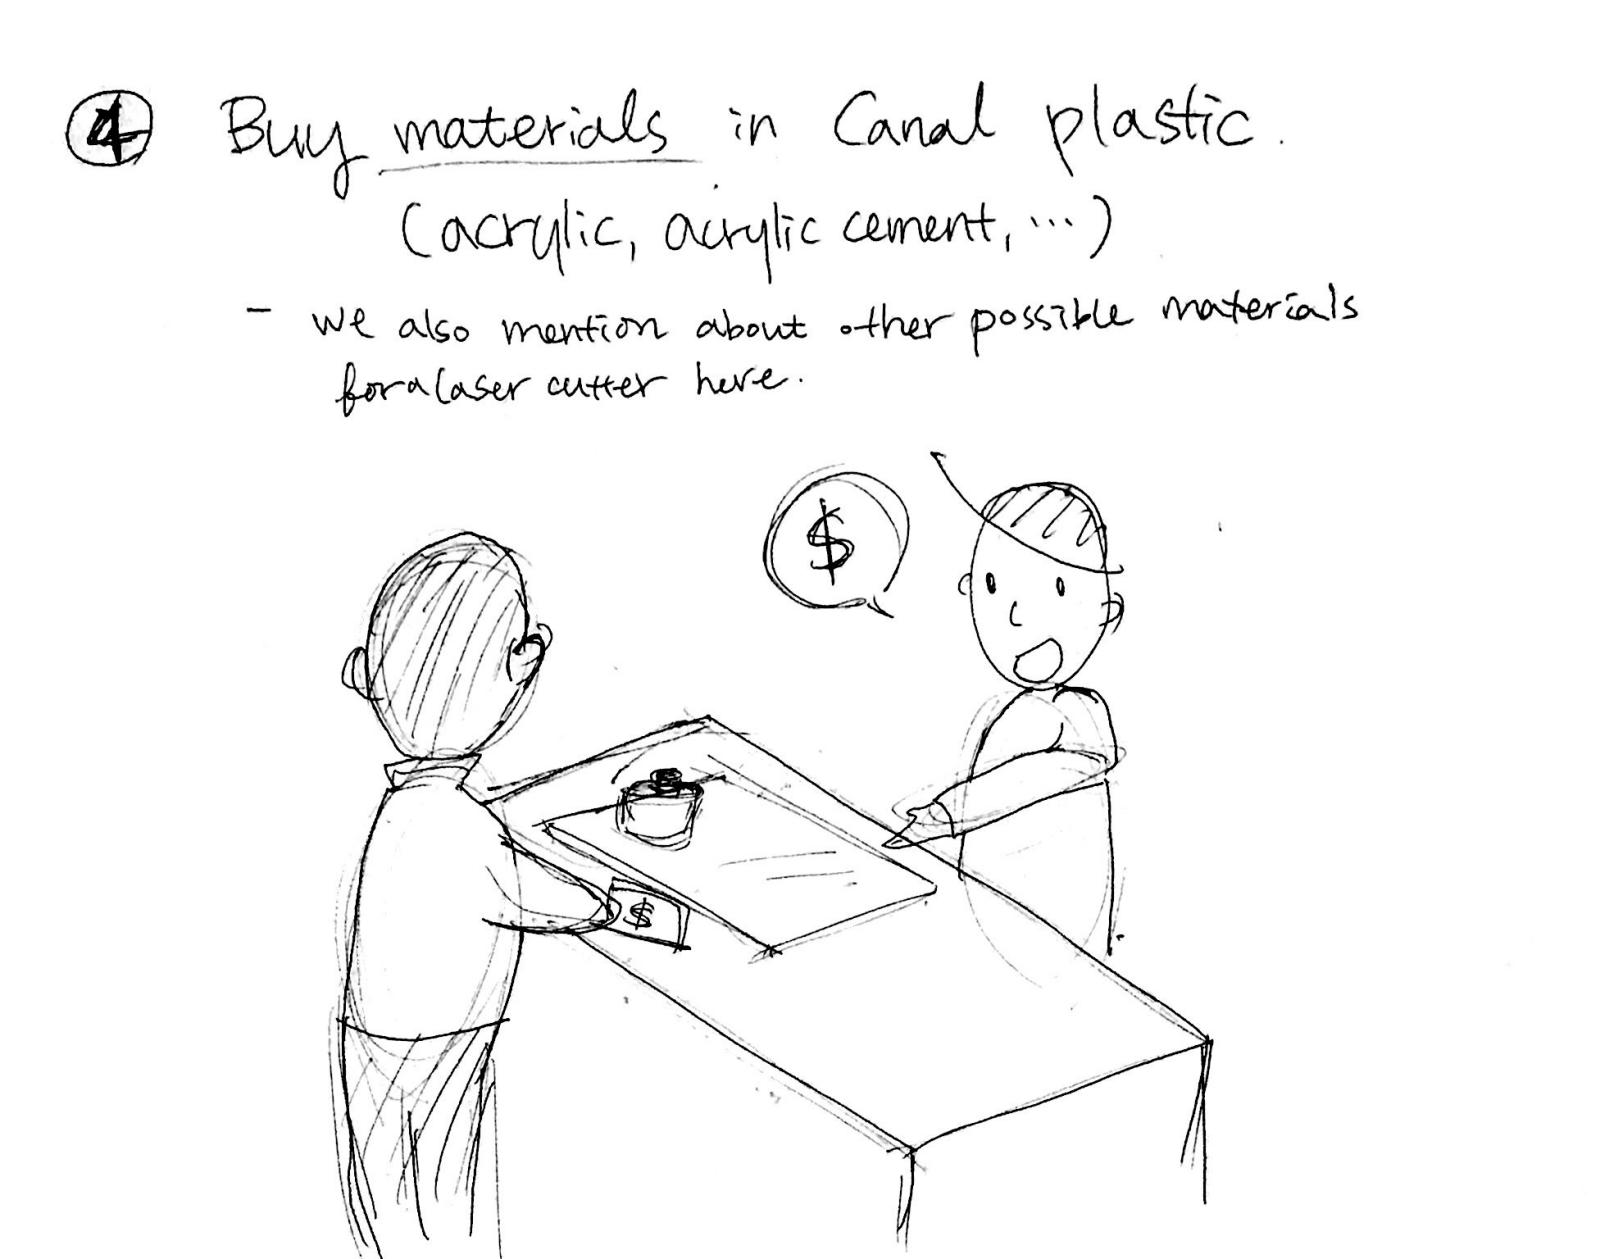 4 Buy materials in Canal plastic.
(acrylic, acrylic cement, ...)
- we also mention about other possible materials
for a laser cutter here.
$
$